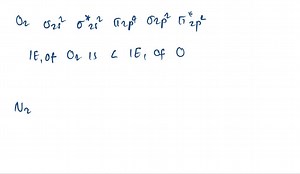 O₂ σ2s² σ*2s² π2p⁴ σ2p² π*2p²
IE₁ of O₂ is < IE₁ of O
N₂